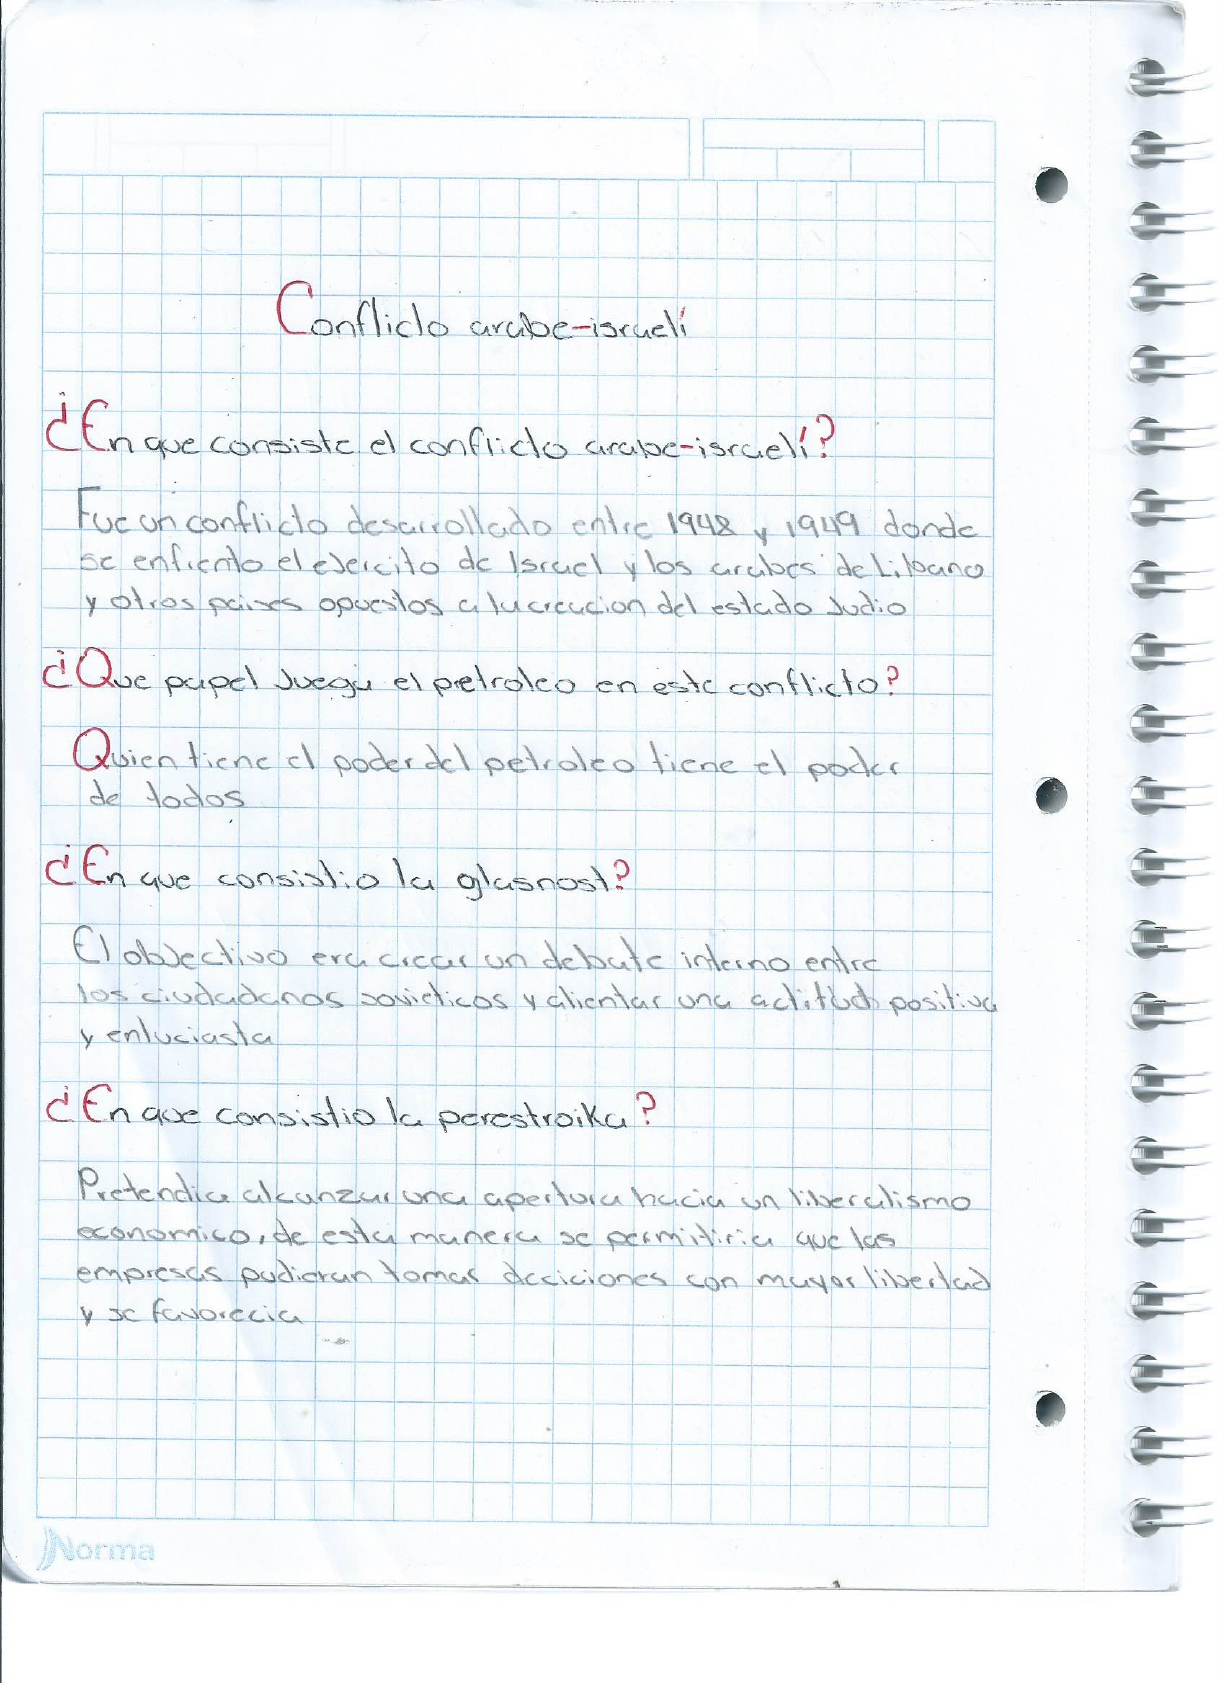 Conflicto arabe-israelí
¿En que consiste el conflicto arabe-israelí?
Fue un conflicto desarrollado entre 1948 y 1949 donde
se enfrento el ejercito de Israel y los arabes de Libano
y otros paises opuestos a la creacion del estado Judio
¿Que papel Juega el petroleo en este conflicto?
Quien tiene el poder del petroleo tiene el poder
de todos
¿En que consistio la glasnost?
El objectivo era crear un debate interno entre
los ciudadanos sovieticos y alientar una actitud positiva
y entuciasta
¿En que consistio la perestroika?
Pretendia alcanzar una apertura hacia un liberalismo
economico, de esta manera se permitiria que las
empresas pudieran tomar deciciones con mayor libertad
y se favorecia
Norma